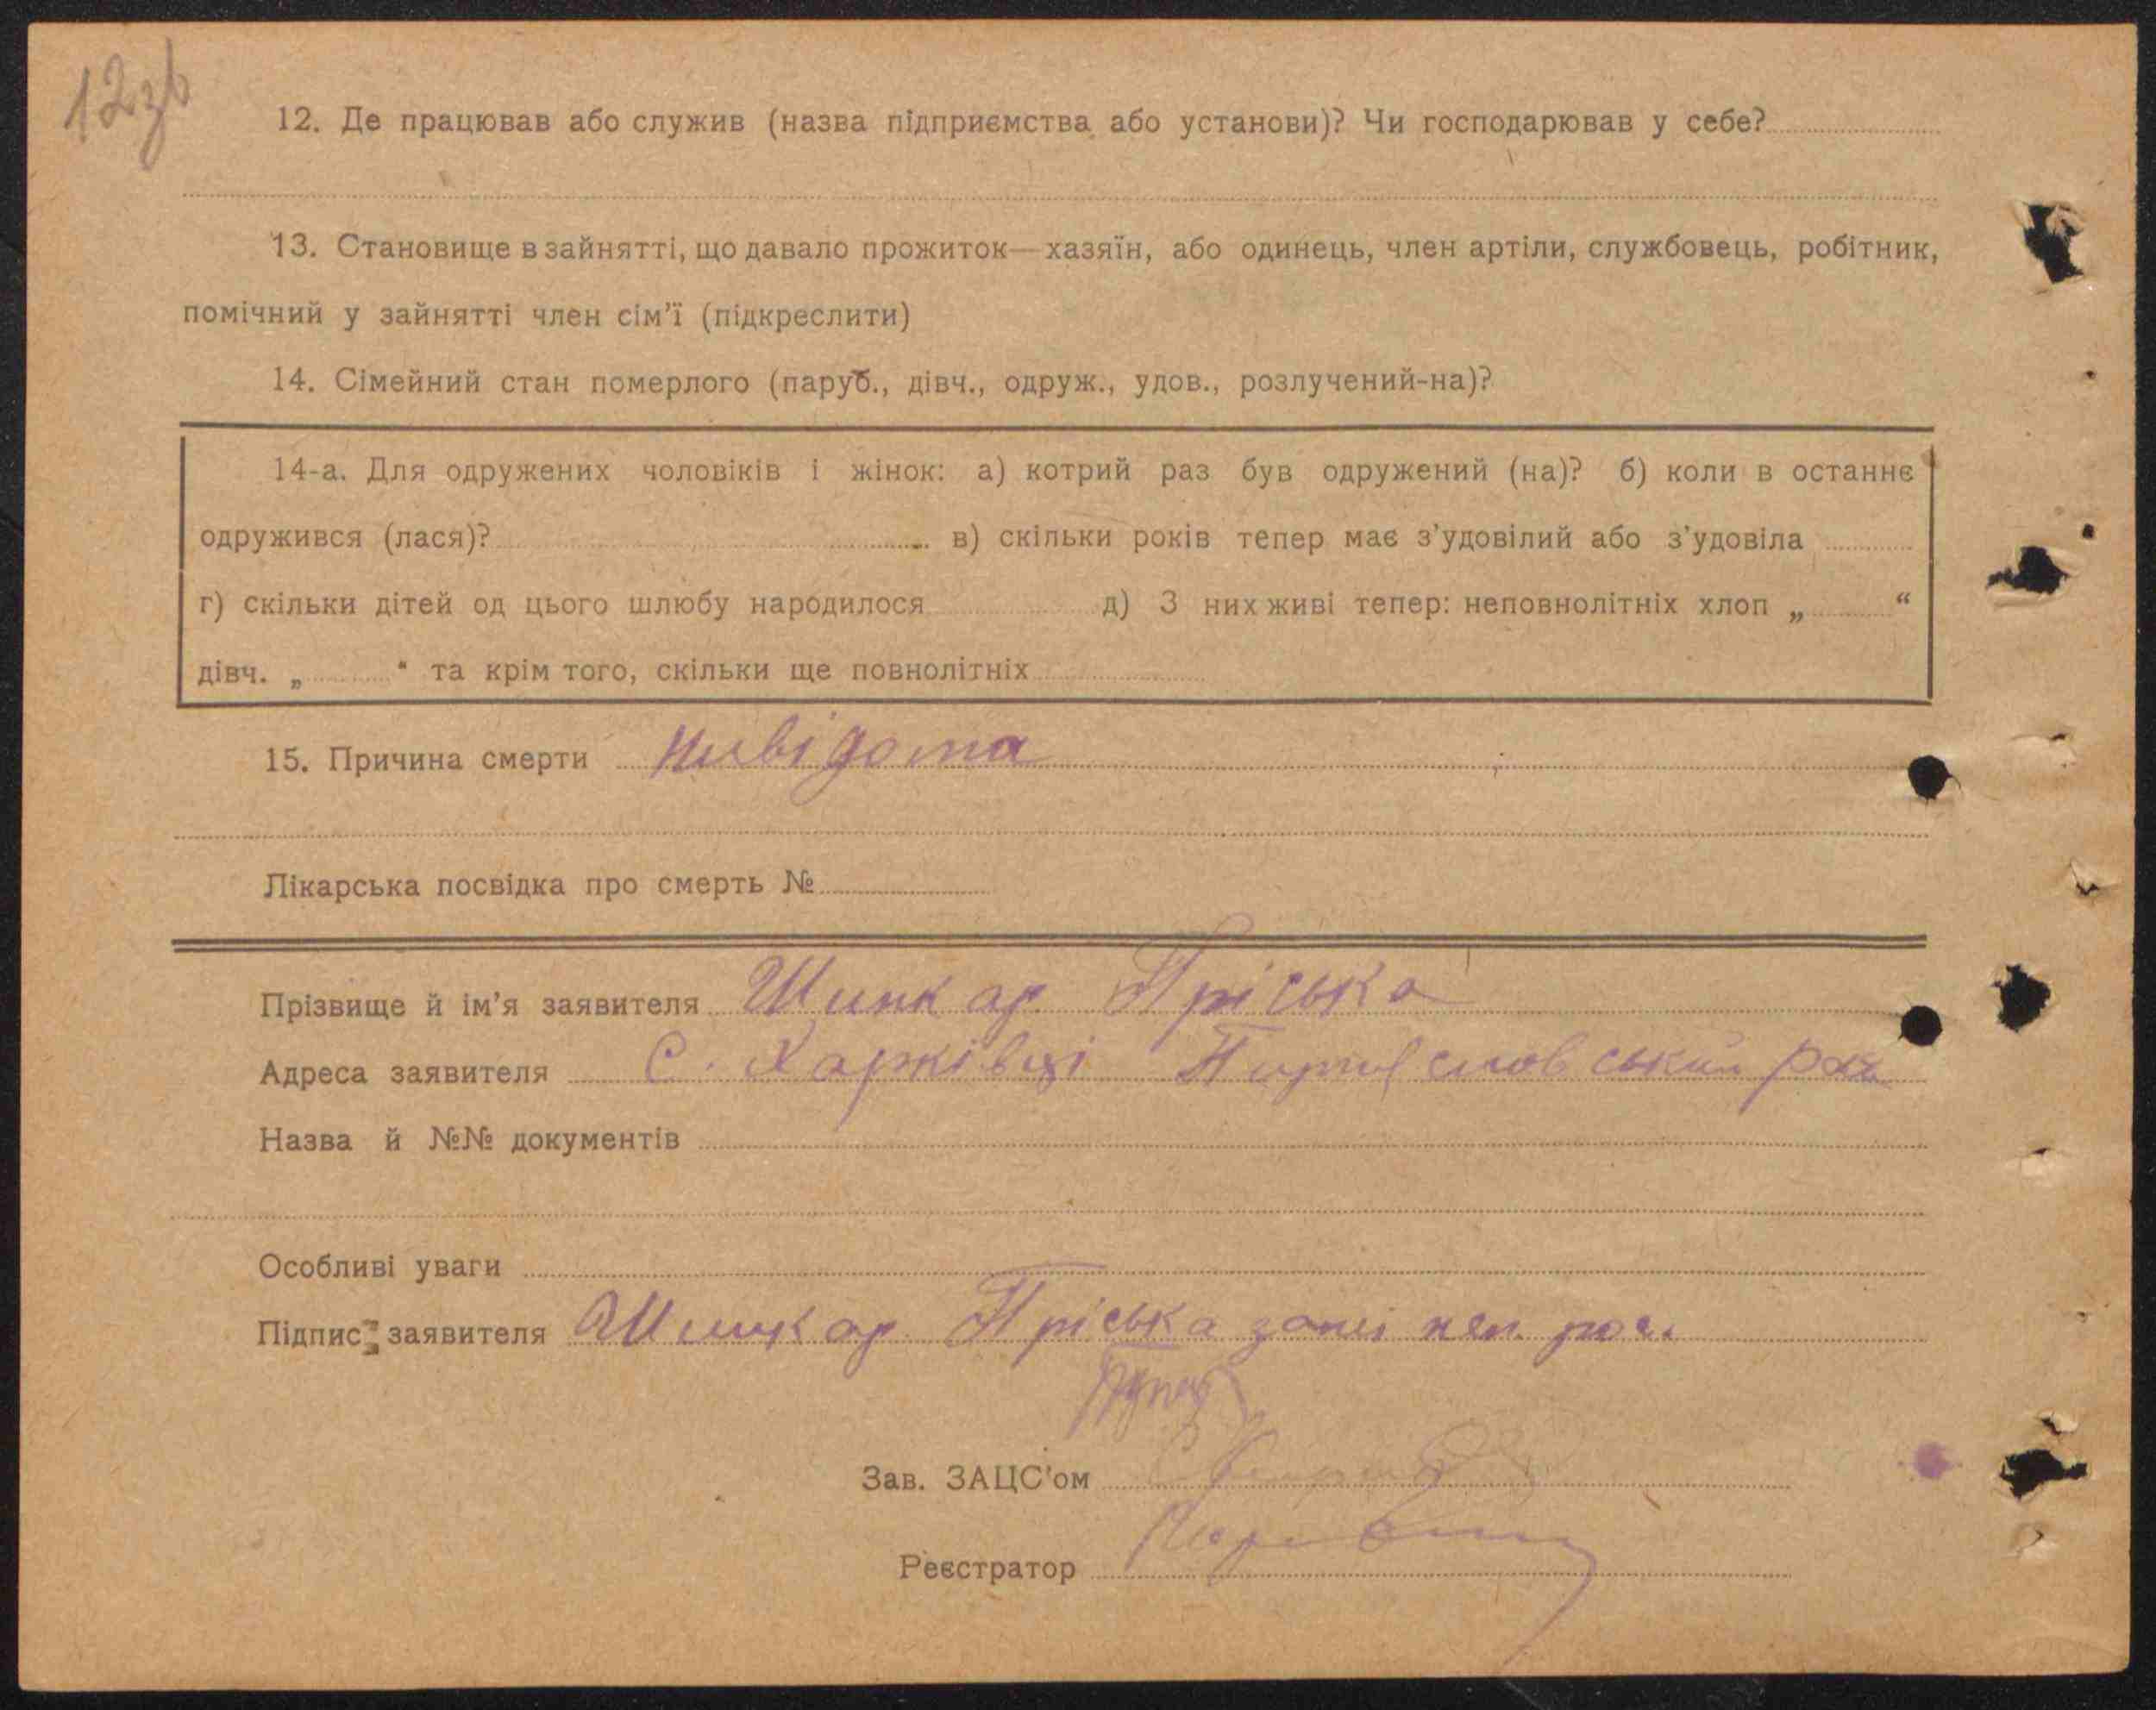 12зв
12. Де працював або служив (назва підприємства або установи)? Чи господарював у себе?
13. Становище в зайнятті, що давало прожиток—хазяїн, або одинець, член артіли, службовець, робітник,
помічний у зайнятті член сім'ї (підкреслити)
14. Сімейний стан померлого (паруб., дівч., одруж., удов., розлучений-на)?
14-а. Для одружених чоловіків і жінок: а) котрий раз був одружений (на)? б) коли в останнє
одружився (лася)? в) скільки років тепер має з'удовілий або з'удовіла
г) скільки дітей од цього шлюбу народилося д) З них живі тепер: неповнолітніх хлоп „ “
дівч. „ “ та крім того, скільки ще повнолітніх
15. Причина смерти невідома
Лікарська посвідка про смерть №
Прізвище й ім'я заявителя Шинкар Пріська
Адреса заявителя С. Харківці
Назва й №№ документів
Особливі уваги
Підпис заявителя Шинкар Пріська
Зав. ЗАЦС'ом
Реєстратор